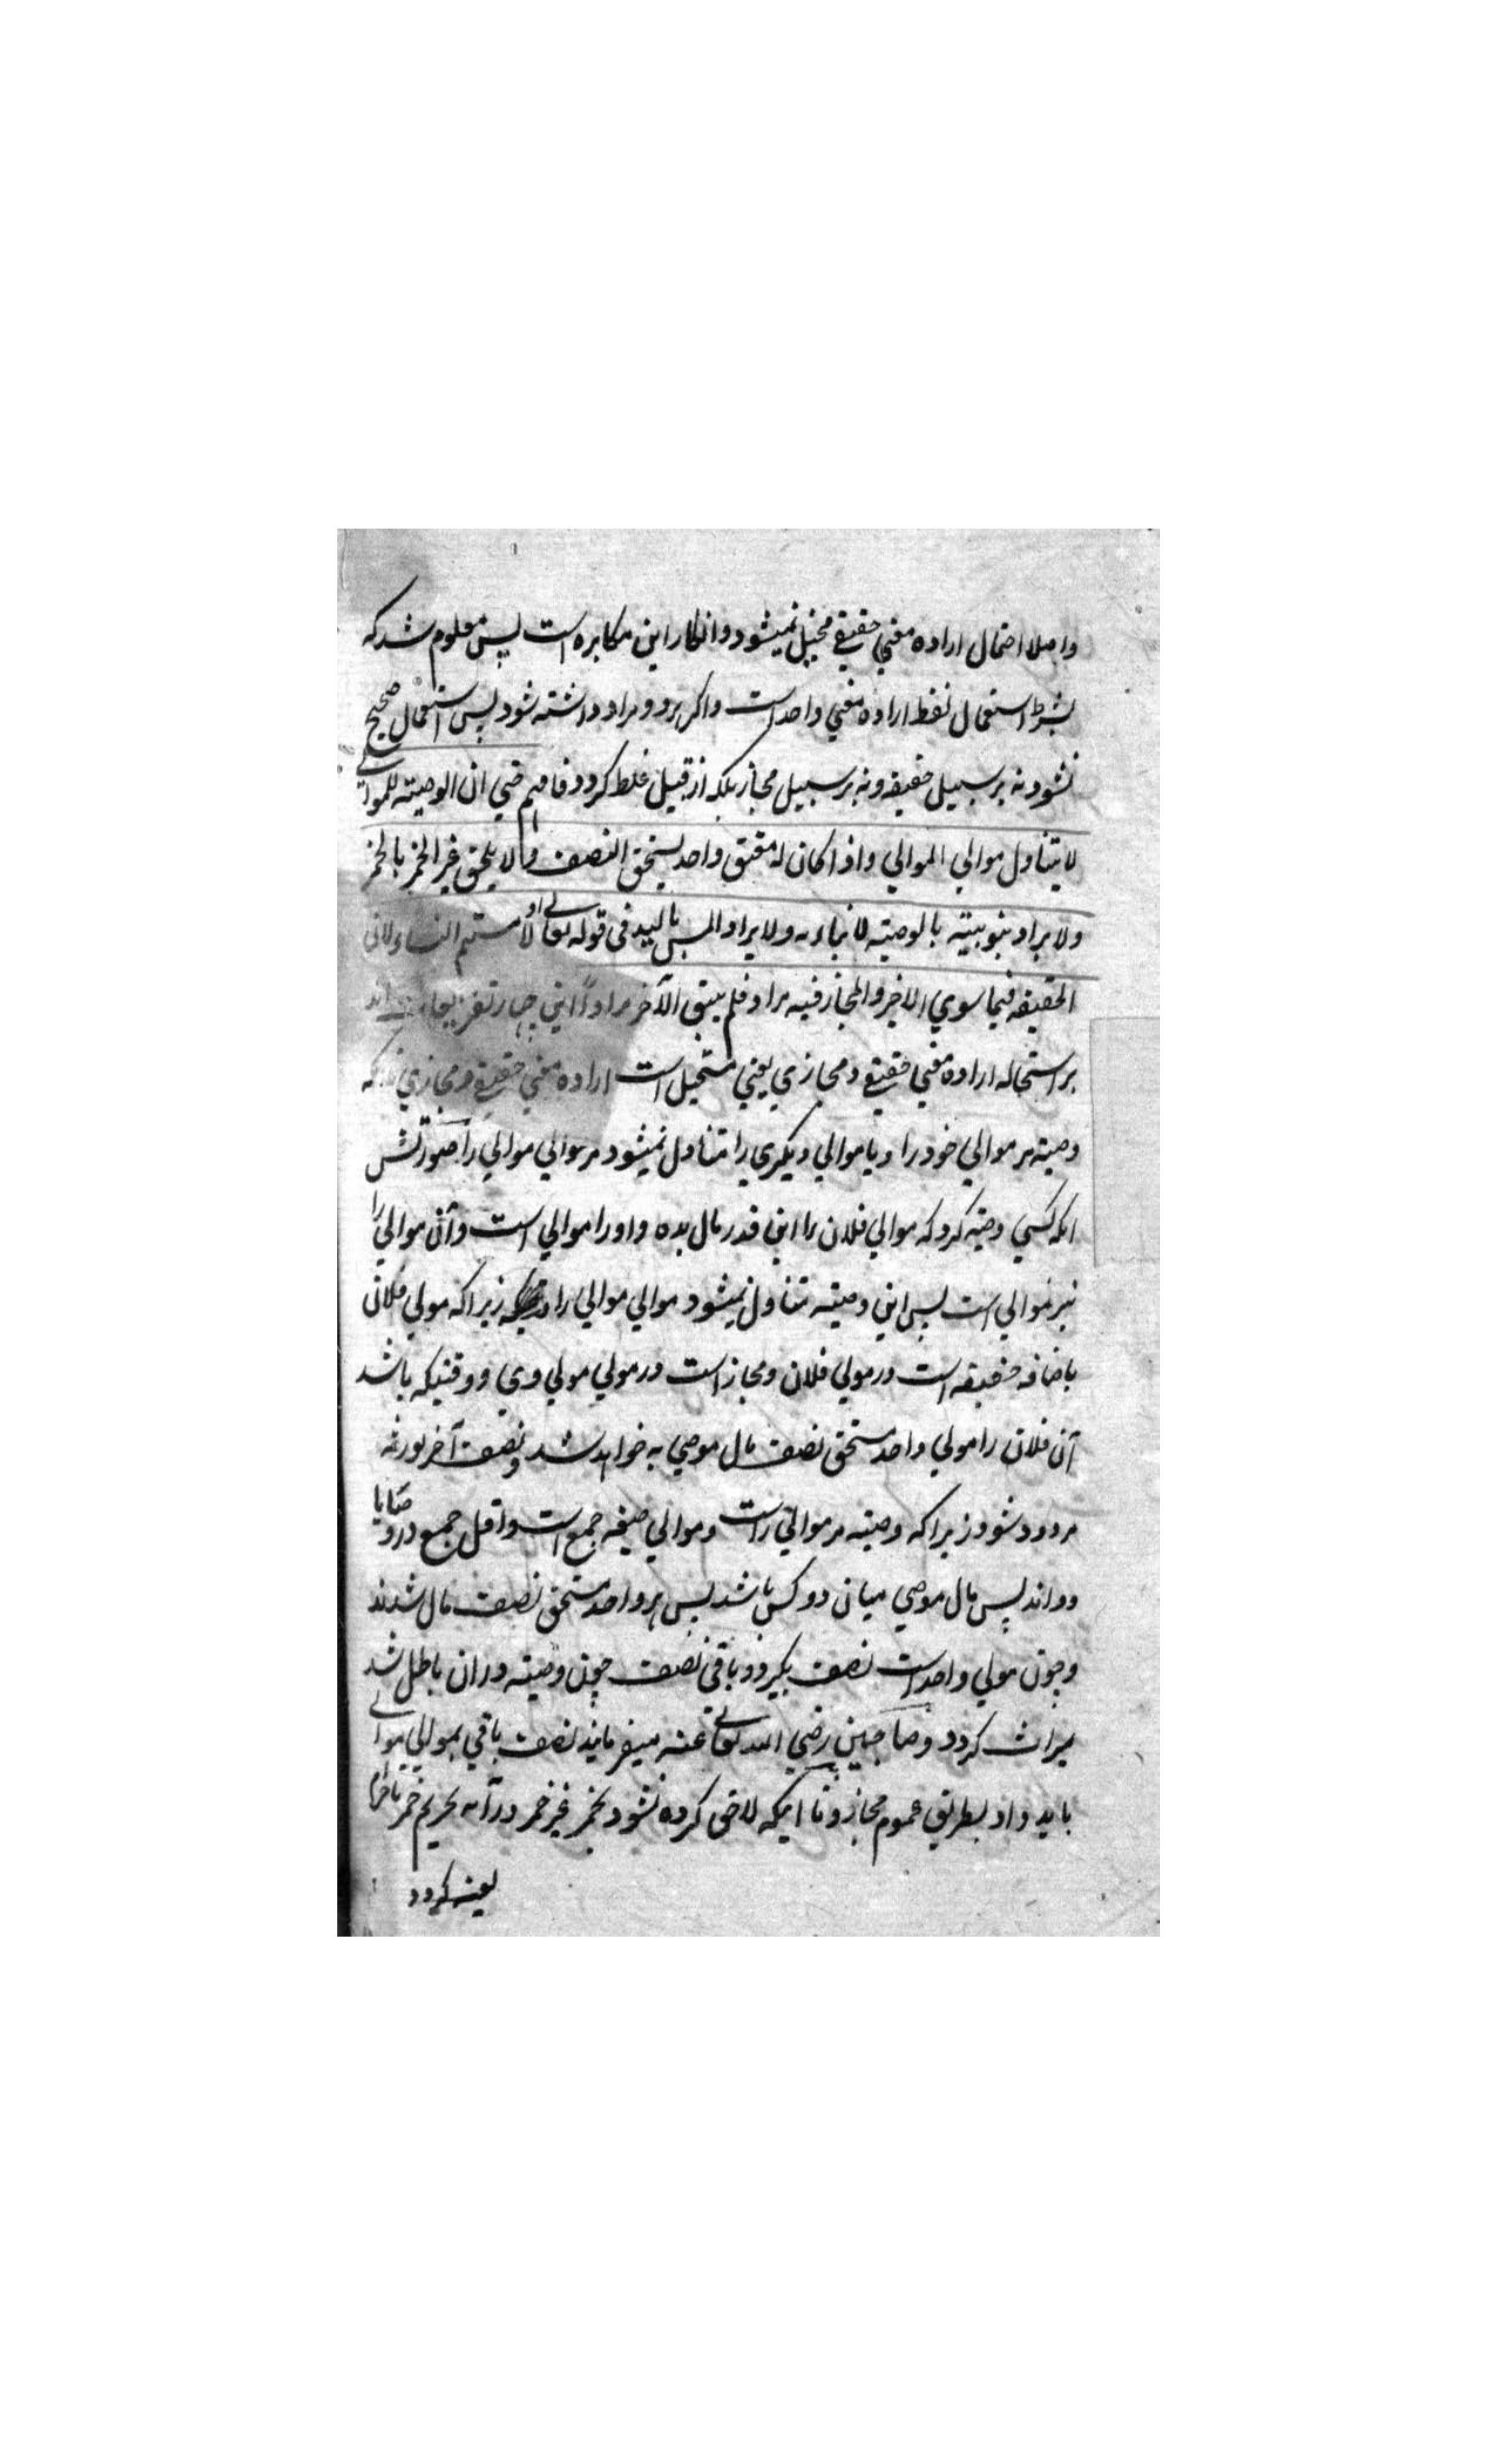 واصلا احتمال اراده معني حقيقے مخيل نميشود وانكار اين مكابره است پس معلوم شد كه
بشرط استعمال لفظ اراده معني واحد است واكر هر دو مراد داشته شود پس استعمال صحيح
نشود نه بر سبيل حقيقه ونه بر سبيل مجاز بلكه از قبيل غلط كردد فافهم حتي ان الوصيته للموالے
لا يتناول موالي الموالي واذا كان له معتق واحد يستحق النصف ولا يلحق غير الخمر بالخمر
ولا يراد بنو بنيه بالوصيته لابناءه ولا يراد المس باليد فى قوله تعالے او لامستم النساء لان
الحقيقه فيما سوي الاخير والمجاز فيه مراد فلم يبق الآخر مرادًا اين چهار تفريعات اند
بر استحاله اراده معني حقيقے ومجازي يعني مستحيل است اراده معني حقيقے ومجازي تا انكه
وصيته مر موالي خود را ويا موالي ديكري را متناول نميشود مر موالي موالي را صورتش
انكه كسي وصيته كرد كه موالي فلان را اين قدر مال بده واو را موالي است وآن موالي را
نيز موالي است پس اين وصيته متناول نميشود موالي موالي را زيرا كه مولي فلان
باضافه حقيقه است در مولي فلان ومجاز است در مولي مولي وي ووقتيكه باشد
آن فلان را مولي واحد مستحق نصف مال موصي به خواهد شد ونصف آخر بورثه
مردود شود زيرا كه وصيته مر موالي راست وموالي صيغه جمع است واقل جمع در وصايا
دو اند پس مال موصي ميان دو كس باشد پس هر واحد مستحق نصف مال شدند
وچون مولي واحد است نصف بكيرد وباقي نصف چون وصيته دران باطل شد
ميراث كردد وصاحبين رضي الله تعالے عنه ميفرمايند نصف باقي بموالي موالے
بايد داد بطريق عموم مجاز وتا اينكه لاحق كرده نشود بخمر غير خمر در آنه تحريم خمر
يعنے كردد